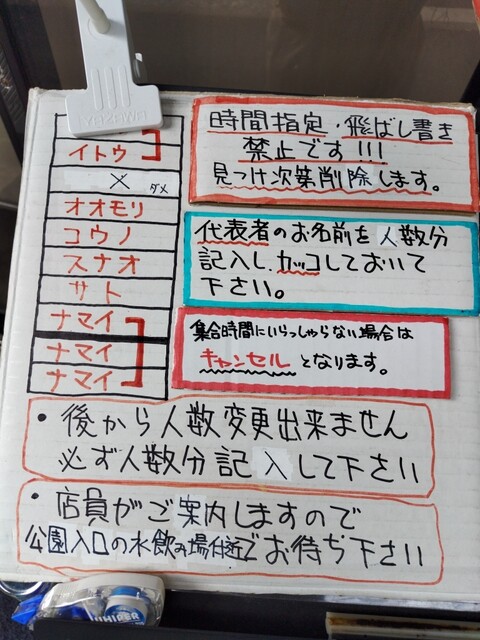 イトウ
×
ダメ
オオモリ
コウノ
スナオ
サト
ナマイ
ナマイ
ナマイ
時間指定・飛ばし書き
禁止です!!!
見つけ次第削除します。
代表者のお名前を人数分
記入し、カッコしておいて
下さい。
集合時間にいらっしゃらない場合は
キャンセルとなります。
・後から人数変更出来ません
必ず人数分記入して下さい
・店員がご案内しますので
公園入口の水飲み場付近でお待ち下さい